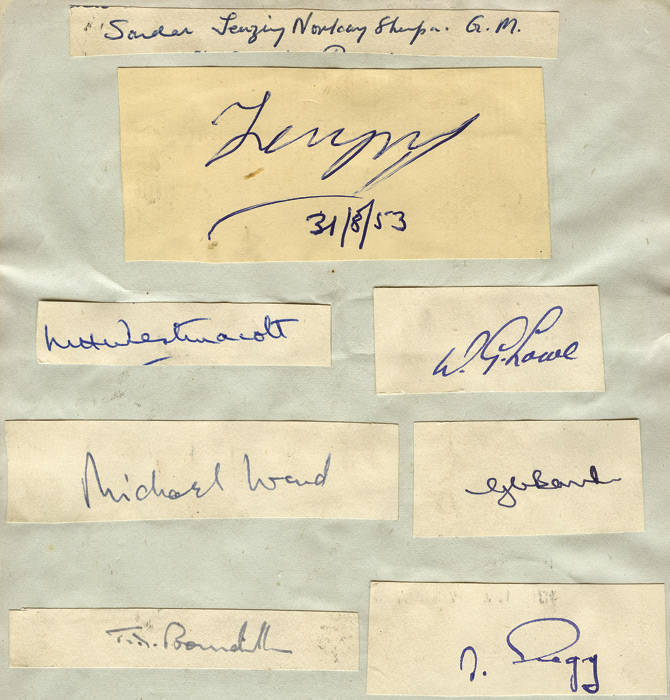 Sardar Tenzing Norkay Sherpa. G.M.
Tenzing
31/8/53
M H Westmacott
W. G. Lowe
Michael Ward
G C Band
T. D. Bourdillon
A. Gregory